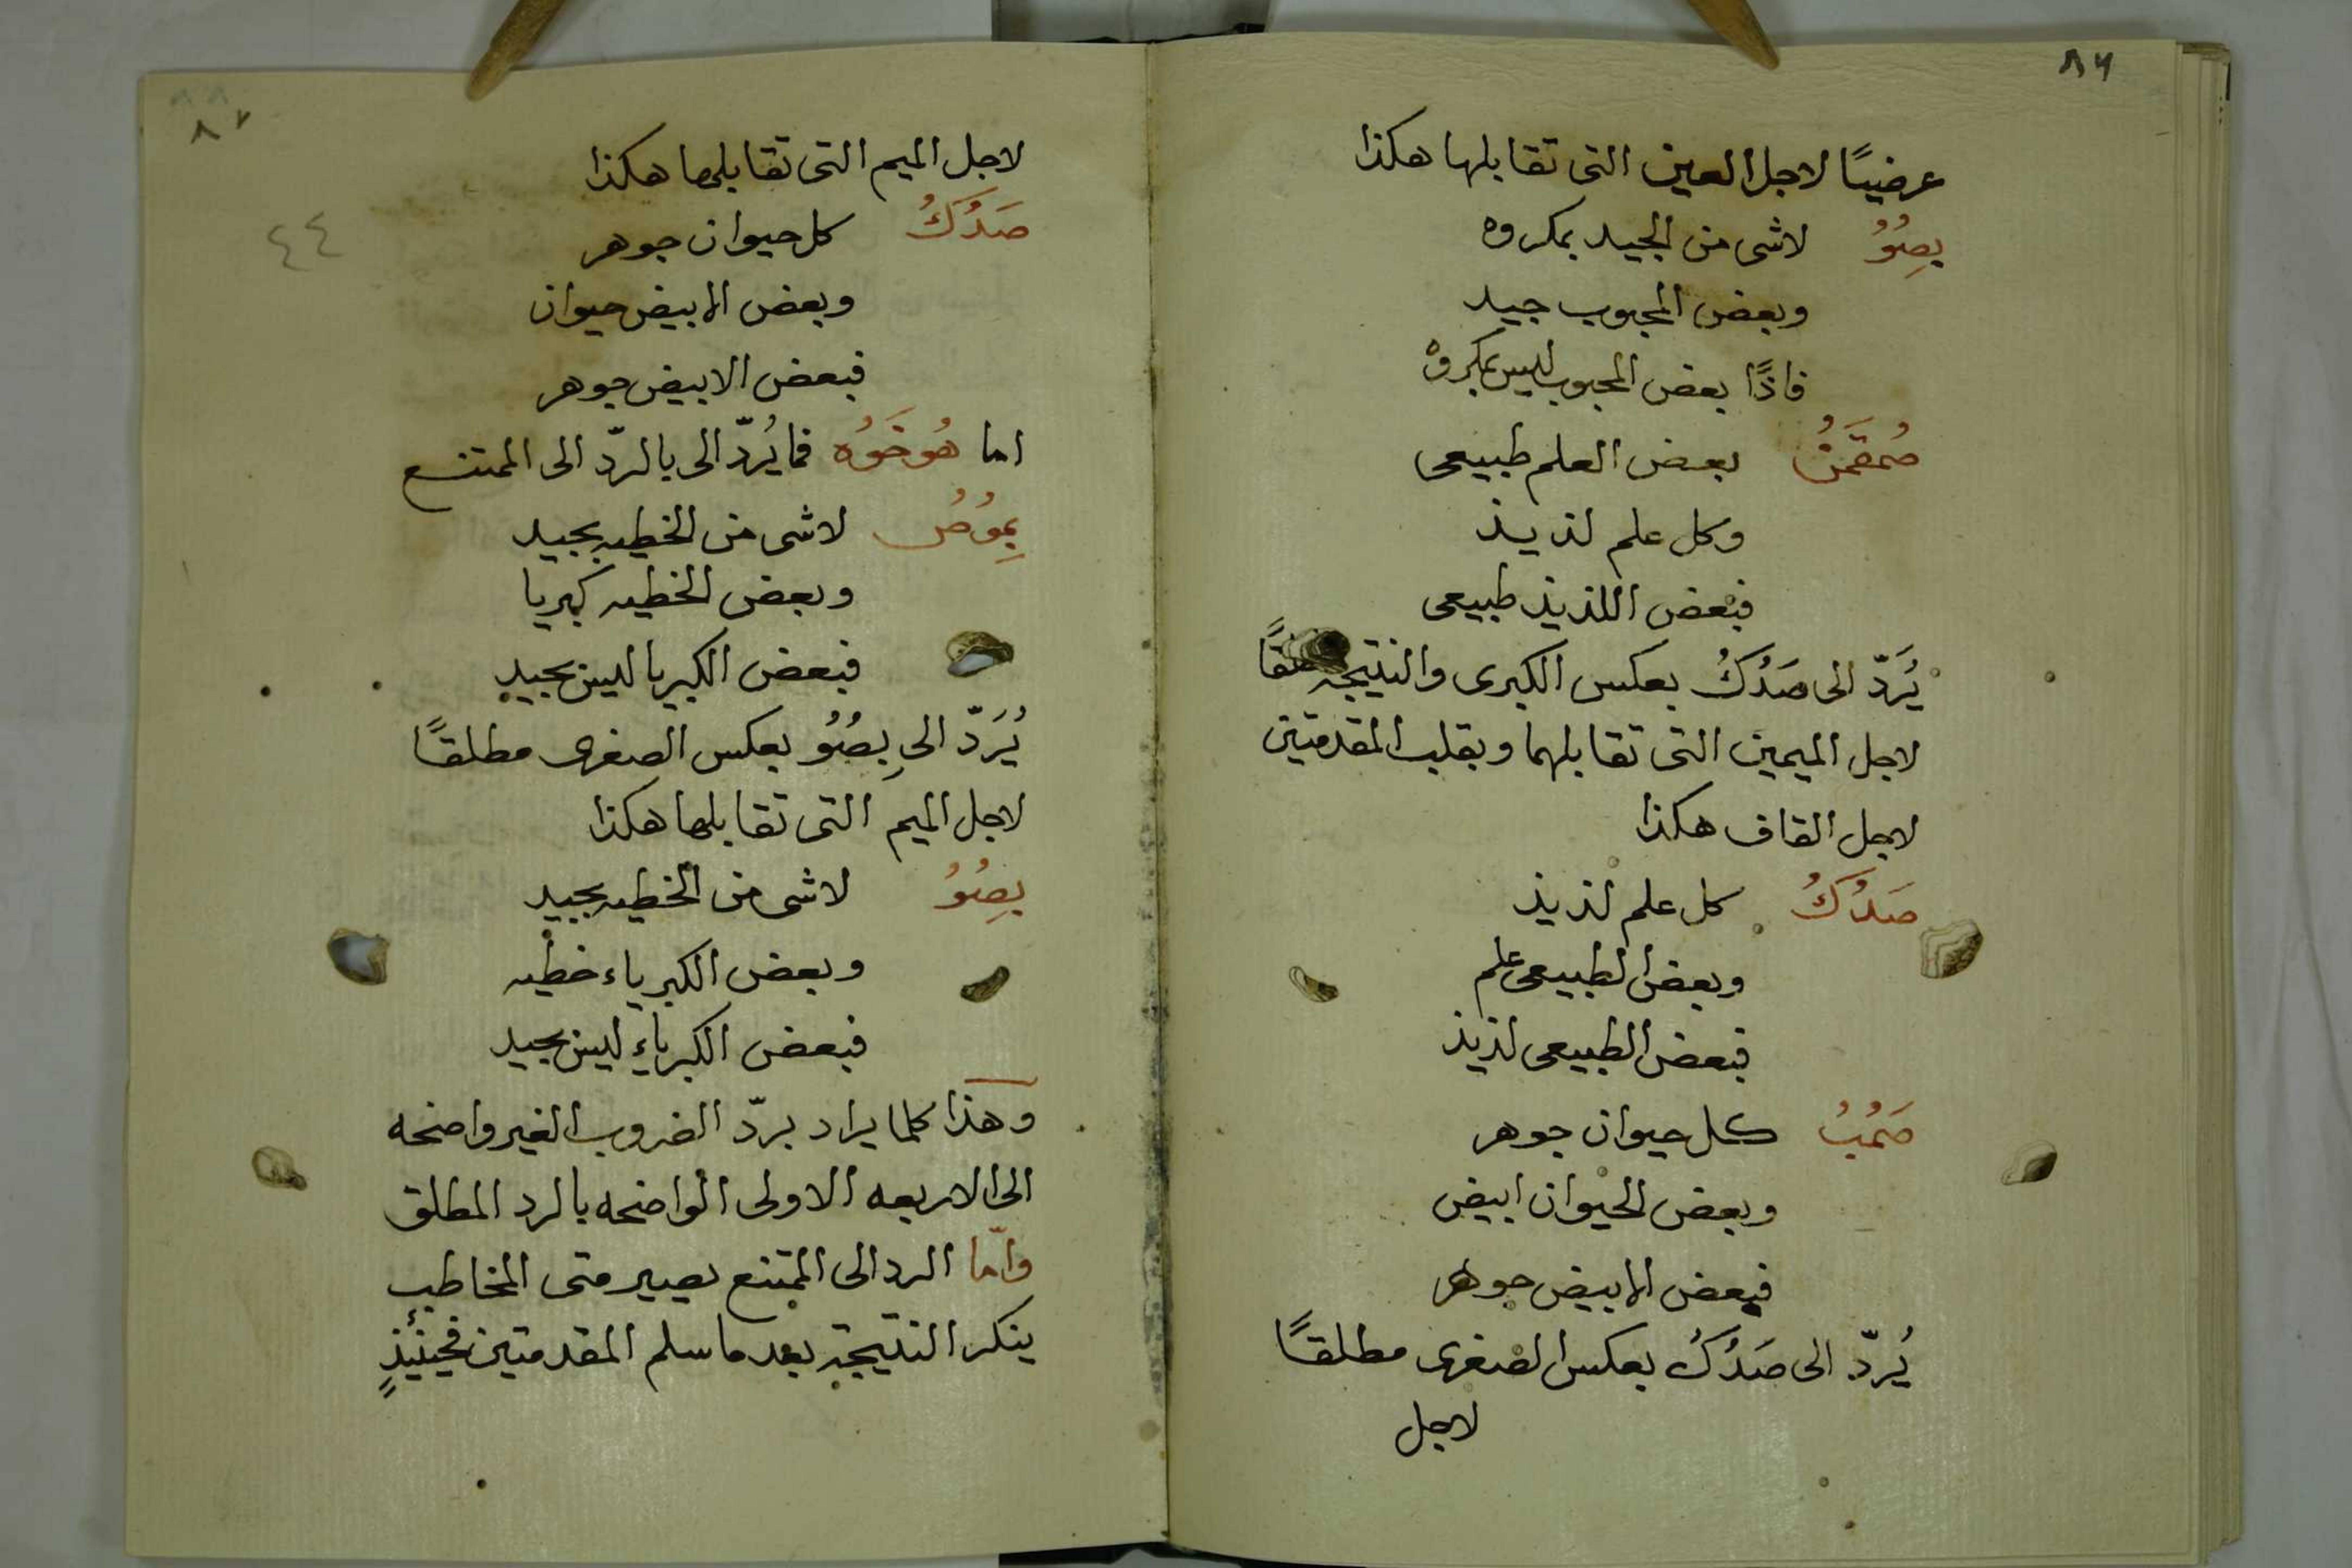 ٨٦
عرضيًا لاجل العين التى تقابلها هكذا
بصِوُوُ لاشى من الجيد بمكروه
وبعض المحبوب جيد
فاذًا بعض المحبوب ليس بمكروه
صُمقَمَنُ بعض العلم طبيعى
وكل علم لذيذ
فبعض اللذيذ طبيعى
يُرَدّ الى صَدُكُ بعكس الكبرى والنتيجة
لاجل الميمين التى تقابلهما وبقلب المقدمتين
لاجل القاف هكذا
صَدُكُ كل علم لذيذ
وبعض الطبيعى علم
فبعض الطبيعى لذيذ
صَمُبُ كل حيوان جوهر
وبعض الحيوان ابيض
فبعض الابيض جوهر
يُردّ الى صَدُكُ بعكس الصغرى مطلقًا
لاجل
٨٧
لاجل الميم التى تقابلها هكذا
٤٤
صَدُكُ كل حيوان جوهر
وبعض الابيض حيوان
فبعض الابيض جوهر
اما هُوخَوُه فما يُردّ الى بالردّ الى الممتنع
يِموُصُ لاشى من الخطيه بجيد
وبعض الخطيه كبريا
فبعض الكبريا ليس بجيد
يُرَدّ الى بِصُوُ بعكس الصغرى مطلقًا
لاجل الميم التى تقابلها هكذا
بصِوُوُ لاشى من الخطيه بجيد
وبعض الكبرياء خطيه
فبعض الكبرياء ليس بجيد
وهذا كلما يراد بردّ الضروب الغير واضحه
الى الاربعه الاولى الواضحه بالرد المطلق
وامّا الرد الى الممتنع يصير متى المخاطب
ينكر النتيجة بعد ما سلم المقدمتين فحينئذٍ